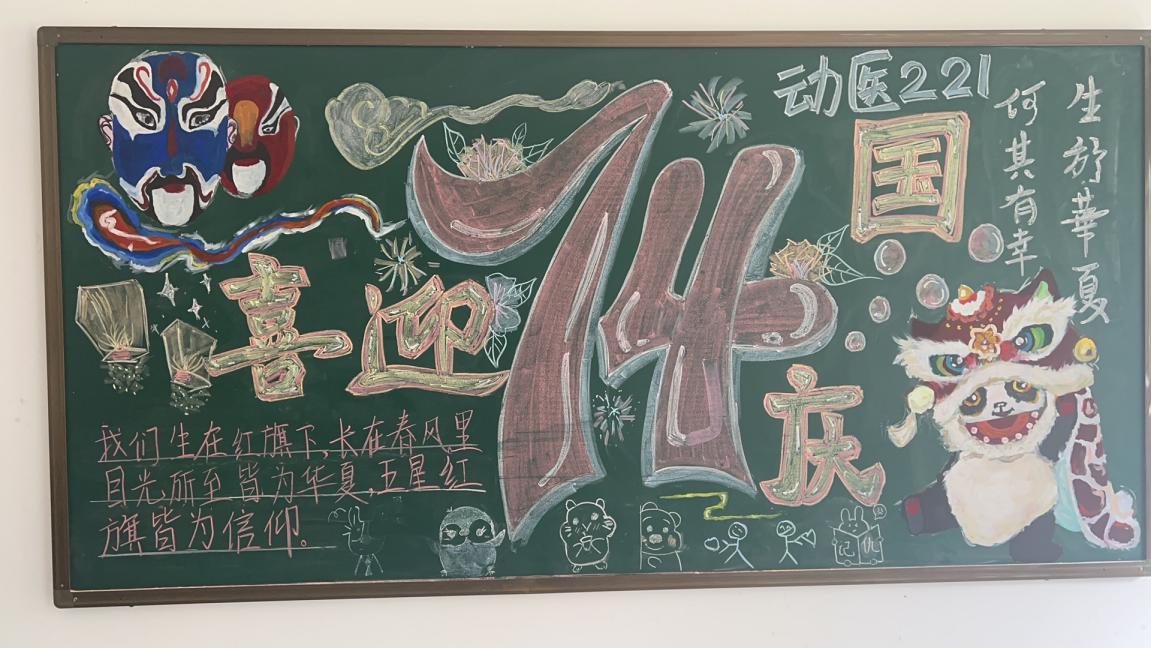 动医221
生於華夏
何其有幸
喜迎
74
国庆
我们生在红旗下,长在春风里
目光所至皆为华夏,五星红
旗皆为信仰。
记仇